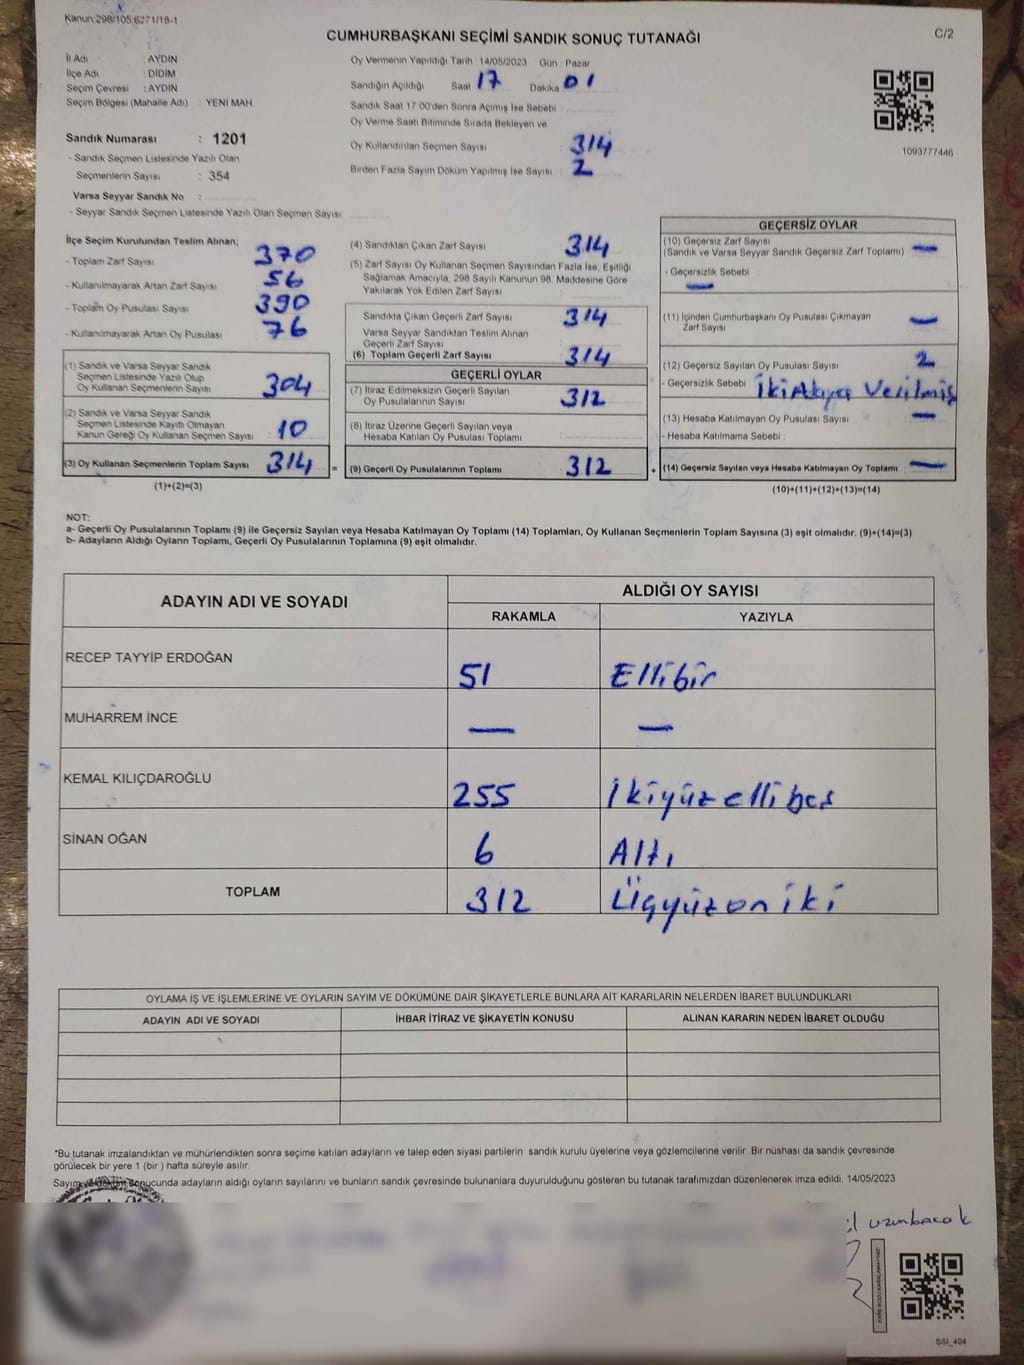 Kanun:298/105,6271/18-1
C/2
CUMHURBAŞKANI SEÇİMİ SANDIK SONUÇ TUTANAĞI
İl Adı : AYDIN
İlçe Adı : DİDİM
Seçim Çevresi : AYDIN
Seçim Bölgesi (Mahalle Adı) : YENİ MAH
Sandık Numarası : 1201
- Sandık Seçmen Listesinde Yazılı Olan
Seçmenlerin Sayısı : 354
Varsa Seyyar Sandık No :
- Seyyar Sandık Seçmen Listesinde Yazılı Olan Seçmen Sayısı
Oy Vermenin Yapıldığı Tarih : 14/05/2023 Gün : Pazar
Sandığın Açıldığı Saat 17 Dakika 01
Sandık Saat 17:00'den Sonra Açımış İse Sebebi :
Oy Verme Saati Bitiminde Sırada Bekleyen ve
Oy Kullandırılan Seçmen Sayısı : 314
Birden Fazla Sayım Döküm Yapılmış İse Sayısı : 2
1093777446
İlçe Seçim Kurulundan Teslim Alınan;
- Toplam Zarf Sayısı : 370
- Kullanılmayarak Artan Zarf Sayısı : 56
- Toplam Oy Pusulası Sayısı : 390
- Kullanılmayarak Artan Oy Pusulası : 76
(1) Sandık ve Varsa Seyyar Sandık
Seçmen Listesinde Yazılı Olup
Oy Kullanan Seçmenlerin Sayısı : 304
(2) Sandık ve Varsa Seyyar Sandık
Seçmen Listesinde Kayıtlı Olmayan
Kanun Gereği Oy Kullanan Seçmen Sayısı : 10
(3) Oy Kullanan Seçmenlerin Toplam Sayısı : 314
(1)+(2)=(3)
(4) Sandıktan Çıkan Zarf Sayısı : 314
(5) Zarf Sayısı Oy Kullanan Seçmen Sayısından Fazla İse, Eşitliği
Sağlamak Amacıyla, 298 Sayılı Kanunun 98. Maddesine Göre
Yakılarak Yok Edilen Zarf Sayısı :
Sandıkta Çıkan Geçerli Zarf Sayısı : 314
Varsa Seyyar Sandıktan Teslim Alınan
Geçerli Zarf Sayısı :
(6) Toplam Geçerli Zarf Sayısı : 314
GEÇERLİ OYLAR
(7) İtiraz Edilmeksizin Geçerli Sayılan
Oy Pusulalarının Sayısı : 312
(8) İtiraz Üzerine Geçerli Sayılan veya
Hesaba Katılan Oy Pusulası Toplamı :
= (9) Geçerli Oy Pusulalarının Toplamı : 312
GEÇERSİZ OYLAR
(10) Geçersiz Zarf Sayısı
(Sandık ve Varsa Seyyar Sandık Geçersiz Zarf Toplamı) : —
- Geçersizlik Sebebi :
—
(11) İçinden Cumhurbaşkanı Oy Pusulası Çıkmayan
Zarf Sayısı : —
(12) Geçersiz Sayılan Oy Pusulası Sayısı : 2
- Geçersizlik Sebebi İki Adaya Verilmiş
(13) Hesaba Katılmayan Oy Pusulası Sayısı : —
- Hesaba Katılmama Sebebi :
+ (14) Geçersiz Sayılan veya Hesaba Katılmayan Oy Toplamı : —
(10)+(11)+(12)+(13)=(14)
NOT:
a- Geçerli Oy Pusulalarının Toplamı (9) ile Geçersiz Sayılan veya Hesaba Katılmayan Oy Toplamı (14) Toplamları, Oy Kullanan Seçmenlerin Toplam Sayısına (3) eşit olmalıdır. (9)+(14)=(3)
b- Adayların Aldığı Oyların Toplamı, Geçerli Oy Pusulalarının Toplamına (9) eşit olmalıdır.
ADAYIN ADI VE SOYADI ALDIĞI OY SAYISI
RAKAMLA YAZIYLA
RECEP TAYYİP ERDOĞAN 51 Ellibir
MUHARREM İNCE — —
KEMAL KILIÇDAROĞLU 255 İkiyüz elli beş
SİNAN OĞAN 6 Altı
TOPLAM 312 Üçyüz on iki
OYLAMA İŞ VE İŞLEMLERİNE VE OYLARIN SAYIM VE DÖKÜMÜNE DAİR ŞİKAYETLERLE BUNLARA AİT KARARLARIN NELERDEN İBARET BULUNDUKLARI
ADAYIN ADI VE SOYADI İHBAR İTİRAZ VE ŞİKAYETİN KONUSU ALINAN KARARIN NEDEN İBARET OLDUĞU
*Bu tutanak imzalandıktan ve mühürlendikten sonra seçime katılan adayların ve talep eden siyasi partilerin sandık kurulu üyelerine veya gözlemcilerine verilir. Bir nüshası da sandık çevresinde
görülecek bir yere 1 (bir ) hafta süreyle asılır.
Sayım ve döküm sonucunda adayların aldığı oyların sayılarını ve bunların sandık çevresinde bulunanlara duyurulduğunu gösteren bu tutanak tarafımızdan düzenlenerek imza edildi. 14/05/2023
uzunbacak
SSI_404